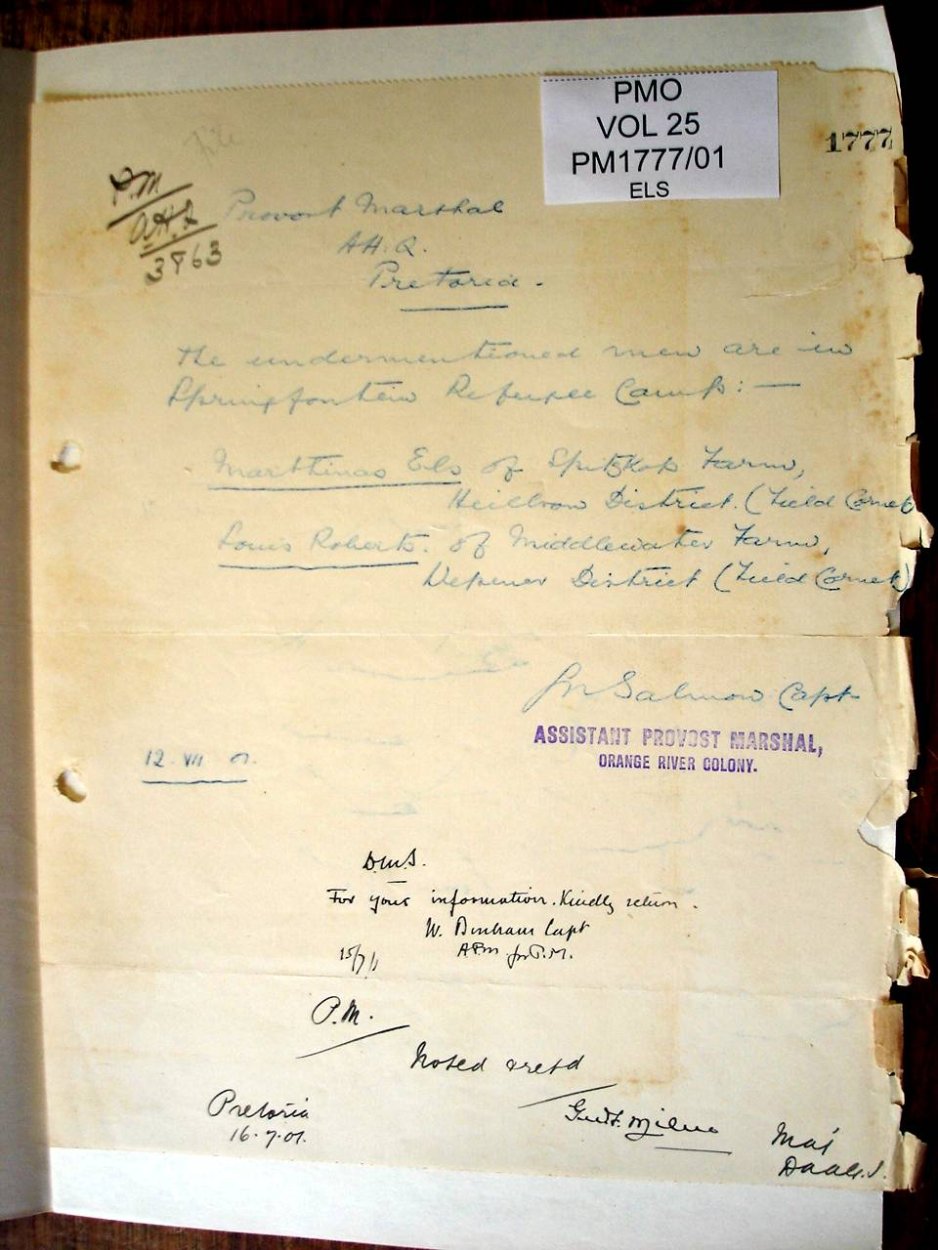 PMO
VOL 25
PM1777/01
ELS
1777
file
P.M
A.H.Q
3863
Provost Marshal
A.H.Q.
Pretoria.
The undermentioned men are in
Springfontein Refugee Camp:—
Marthinas Els of Spitzkop Farm,
Heilbron District. (Field Cornet
Louis Roberts. of Middlewater Farm,
Wepener District (Field Cornet)
Salmon Capt
ASSISTANT PROVOST MARSHAL,
ORANGE RIVER COLONY.
12. VII 01.
D.M.I.
For your information. Kindly return.
W. Bonham Capt
APM for P.M.
15/7/1
P.M.
Noted & retd
Pretoria
16.7.01.
Milne
Maj
DAAG.I.